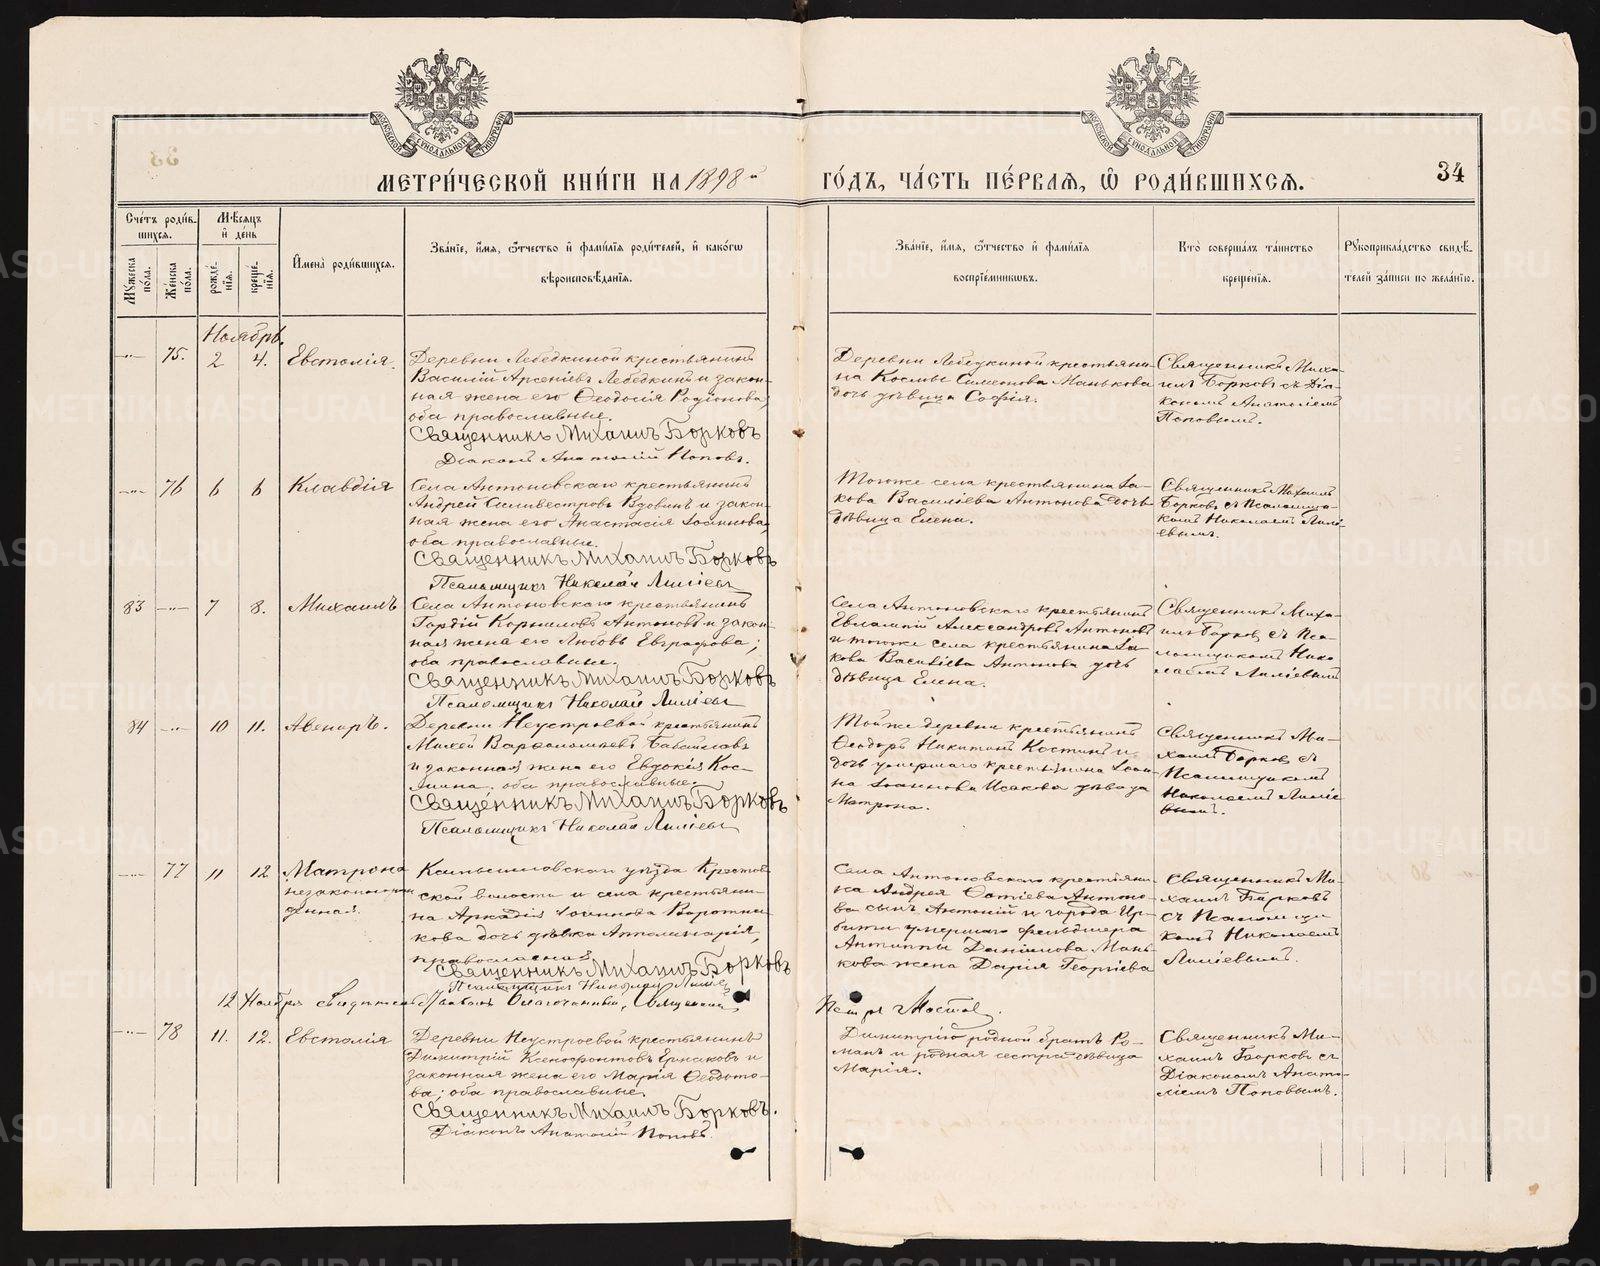 МЕТРИ́ЧЕСКОЙ КНИ́ГИ НА 1898й ГО́ДЪ, ЧА́СТЬ ПЕ́РВАѦ, Ѽ РОДИ́ВШИХСѦ.
34
Сче́тъ роди́в-
шихсѧ.
Мꙋ́жеска по́ла.
Же́нска по́ла.
Мѣ́сѧцъ и҆ де́нь
рожде́нїѧ.
креще́нїѧ.
И҆мена̀ роди́вшихсѧ.
Зва́нїе, и҆́мѧ, ѻ҆́тчество и҆ фами́лїѧ роди́телей, и҆ како́гѡ
вѣроисповѣ́данїѧ.
Зва́нїе, и҆́мѧ, ѻ҆́тчество и҆ фами́лїѧ
воспрїе́мникѡвъ.
Кто̀ соверша́лъ та́инство
креще́нїѧ.
Рꙋкоприкла́дство свидѣ́-
телей за́писи по жела́нїю.
Ноябрь.
75. 2 4. Евстолія.
Деревни Лебедкиной крестьянинъ
Василій Арсеніевъ Лебедкинъ и закон-
ная жена его Ѳеодосія Родіонова,
оба православные.
Священникъ Михаилъ Борковъ
Діаконъ Анатолій Поповъ.
Деревни Лебедкиной крестьяни-
на Космы Симеонова Манькова
дочь дѣвица Софія.
Священникъ Миха-
илъ Борковъ съ Діа-
кономъ Анатоліемъ
Поповымъ.
76 6 6 Клавдія
Села Антоновскаго крестьянинъ
Андрей Сильвестровъ Вдовинъ и закон-
ная жена его Анастасія Іоаннова,
оба православные.
Священникъ Михаилъ Борковъ
Псаломщикъ Николай Лиліевъ
Тогоже села крестьянина Іа-
кова Василіева Антонова дочь
дѣвица Елена.
Священникъ Михаилъ
Борковъ съ Псаломщи-
комъ Николаемъ Лилі-
евымъ.
83 7 8. Михаилъ
Села Антоновскаго крестьянинъ
Гордій Корниловъ Антоновъ и закон-
ная жена его Любовь Евграфова;
оба православные.
Священникъ Михаилъ Борковъ
Псаломщикъ Николай Лиліевъ
Села Антоновскаго крестьянинъ
Евлампій Александровъ Антоновъ
и тогоже села крестьянина Іа-
кова Василіева Антонова дочь
дѣвица Елена.
Священникъ Миха-
илъ Борковъ съ Пса-
ломщикомъ Нико-
лаемъ Лиліевымъ
84 10 11. Авениръ.
Деревни Неустроевой крестьянинъ
Михей Варѳоломеевъ
и законная жена его Евдокія Кос-
мина, оба православные.
Священникъ Михаилъ Борковъ
Псаломщикъ Николай Лиліевъ
Тойже деревни крестьянинъ
Ѳеодоръ Никитинъ Костинъ и
дочь умершаго крестьянина Іоан-
на Іоаннова Исакова дѣвица
Матрона.
Священникъ Ми-
хаилъ Борковъ съ
Псаломщикомъ
Николаемъ Лиліе-
вымъ.
77 11 12 Матрона
незаконнорож
денная.
Камышловскаго уѣзда
ской волости и села крестьяни-
на Аркадія Іоаннова Воротни-
кова дочь дѣвка Аполинарія,
православная
Священникъ Михаилъ Борковъ
Псаломщикъ Николай Лиліевъ
Села Антоновскаго крестьяни-
на Андрея Фотіева Антоно-
ва сынъ Антоній и города Ир-
бити умершаго фельдшера
Антиппы Даніилова Мань-
кова жена Дарія Георгіева
Священникъ Ми-
хаилъ Борковъ
съ Псаломщи
комъ Николаемъ
Лиліевымъ.
12 Ноября Благочинный, Священникъ Петръ
78 11. 12. Евстолія
Деревни Неустроевой крестьянинъ
Димитрій Ксенофонтовъ Ермаковъ и
законная жена его Марія Ѳеодото-
ва; оба православные.
Священникъ Михаилъ Борковъ.
Діаконъ Анатолій Поповъ.
Димитрію родной братъ Ро-
манъ и родная сестра дѣвица
Марія.
Священникъ Ми-
хаилъ Борковъ съ
Діакономъ Анато-
ліемъ Поповымъ.
METRIKI.GASO-URAL.RU